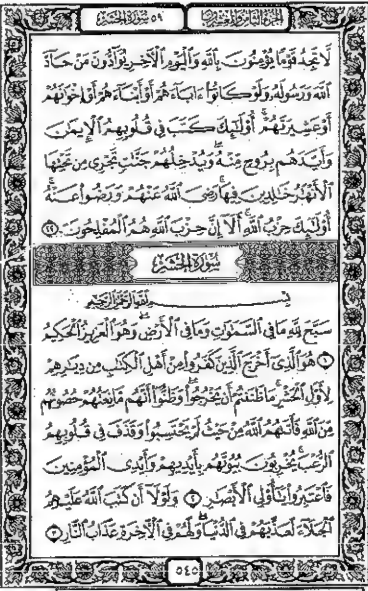 الجزء الثامن والعشرون
٥٩ سورة الحشر
لَّا تَجِدُ قَوْمًا يُؤْمِنُونَ بِاللَّهِ وَالْيَوْمِ الْآخِرِ يُوَادُّونَ مَنْ حَادَّ
اللَّهَ وَرَسُولَهُ وَلَوْ كَانُوا آبَاءَهُمْ أَوْ أَبْنَاءَهُمْ أَوْ إِخْوَانَهُمْ
أَوْ عَشِيرَتَهُمْ أُولَٰئِكَ كَتَبَ فِي قُلُوبِهِمُ الْإِيمَانَ
وَأَيَّدَهُم بِرُوحٍ مِّنْهُ وَيُدْخِلُهُمْ جَنَّاتٍ تَجْرِي مِن تَحْتِهَا
الْأَنْهَارُ خَالِدِينَ فِيهَا رَضِيَ اللَّهُ عَنْهُمْ وَرَضُوا عَنْهُ
أُولَٰئِكَ حِزْبُ اللَّهِ أَلَا إِنَّ حِزْبَ اللَّهِ هُمُ الْمُفْلِحُونَ ٢٢
سورة الحشر
بسم الله الرحمن الرحيم
سَبَّحَ لِلَّهِ مَا فِي السَّمَاوَاتِ وَمَا فِي الْأَرْضِ وَهُوَ الْعَزِيزُ الْحَكِيمُ
١ هُوَ الَّذِي أَخْرَجَ الَّذِينَ كَفَرُوا مِنْ أَهْلِ الْكِتَابِ مِن دِيَارِهِمْ
لِأَوَّلِ الْحَشْرِ مَا ظَنَنتُمْ أَن يَخْرُجُوا وَظَنُّوا أَنَّهُم مَّانِعَتُهُمْ حُصُونُهُم
مِّنَ اللَّهِ فَأَتَاهُمُ اللَّهُ مِنْ حَيْثُ لَمْ يَحْتَسِبُوا وَقَذَفَ فِي قُلُوبِهِمُ
الرُّعْبَ يُخْرِبُونَ بُيُوتَهُم بِأَيْدِيهِمْ وَأَيْدِي الْمُؤْمِنِينَ
فَاعْتَبِرُوا يَا أُولِي الْأَبْصَارِ ٢ وَلَوْلَا أَن كَتَبَ اللَّهُ عَلَيْهِمُ
الْجَلَاءَ لَعَذَّبَهُمْ فِي الدُّنْيَا وَلَهُمْ فِي الْآخِرَةِ عَذَابُ النَّارِ ٣
٥٤٥